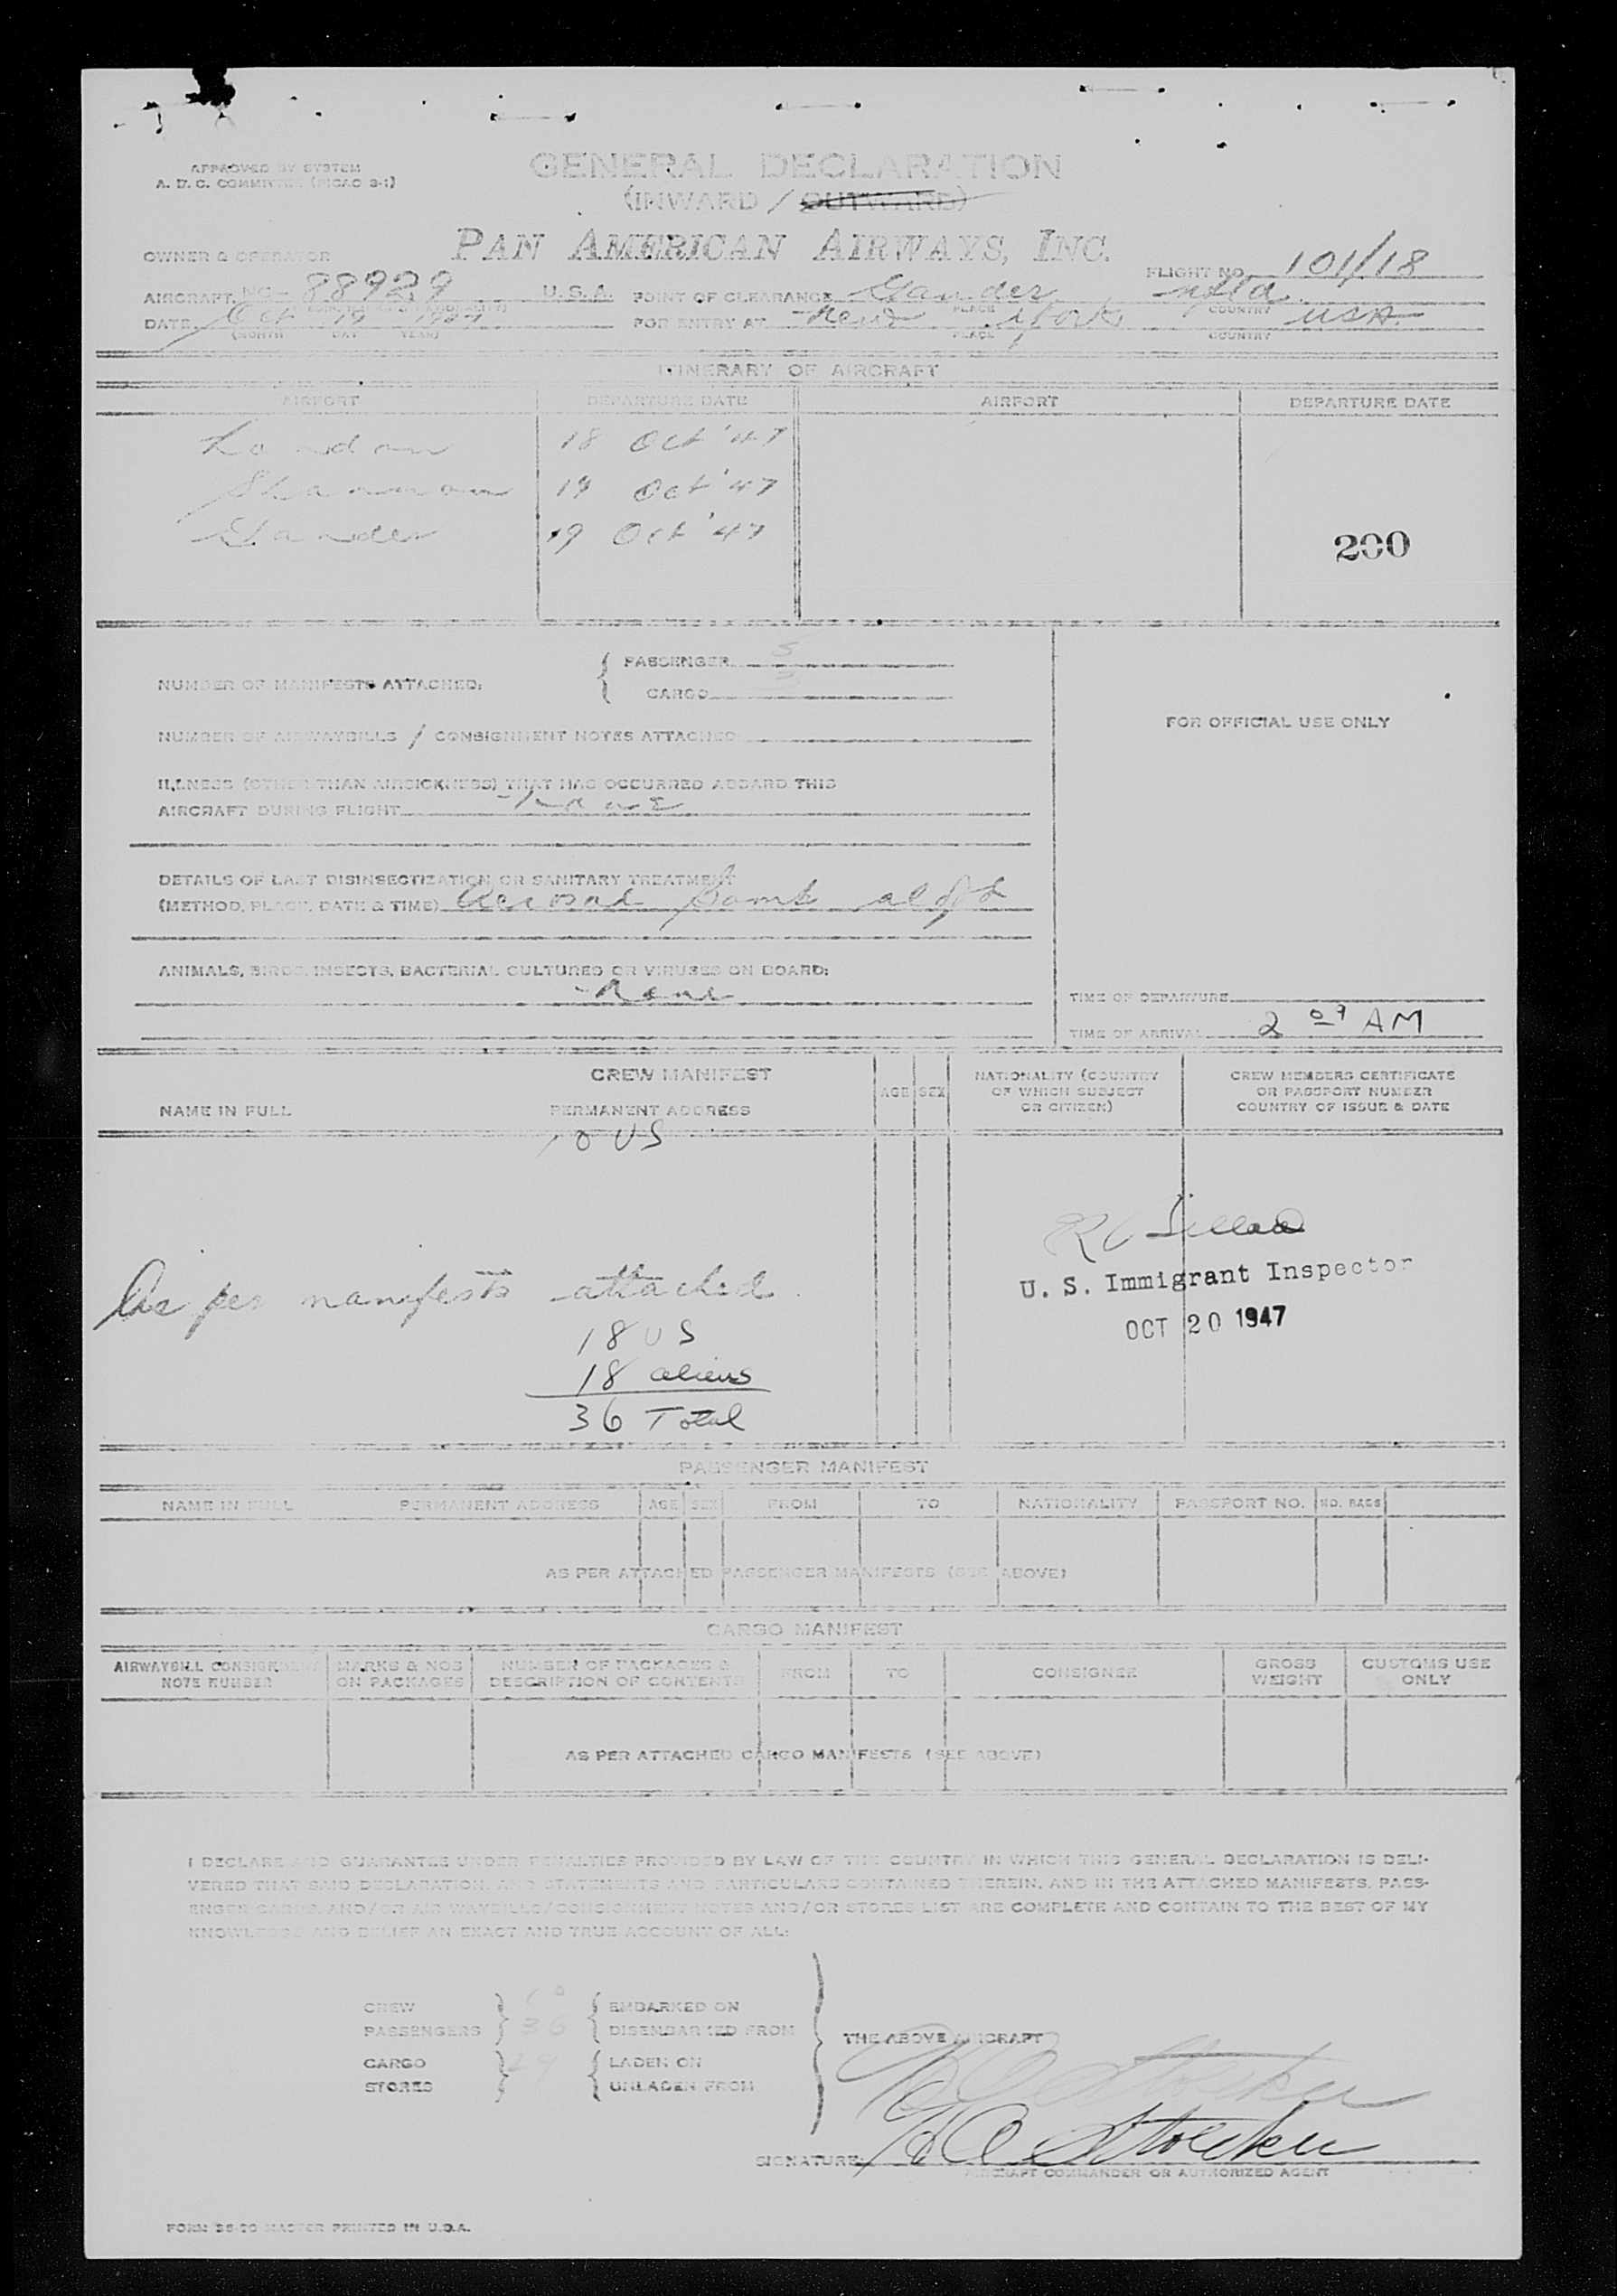 APPROVED BY SYSTEM
A. D. C. COMMITTEE (PICAO 3-1)
GENERAL DECLARATION
(INWARD / OUTWARD)
OWNER & OPERATOR PAN AMERICAN AIRWAYS, INC.
FLIGHT NO. 101/18
AIRCRAFT NC- 88929 U. S. A. POINT OF CLEARANCE Gander Nfld
PLACE COUNTRY
DATE Oct 19 1947 FOR ENTRY AT New York USA
(MONTH DAY YEAR) PLACE COUNTRY
ITINERARY OF AIRCRAFT
AIRPORT DEPARTURE DATE AIRPORT DEPARTURE DATE
London 18 Oct '47
Shannon 19 Oct '47
Gander 19 Oct '47
200
NUMBER OF MANIFESTS ATTACHED: PASSENGER 5
CARGO
FOR OFFICIAL USE ONLY
NUMBER OF AIRWAYBILLS / CONSIGNMENT NOTES ATTACHED
ILLNESS (OTHER THAN AIRSICKNESS) THAT HAS OCCURRED ABOARD THIS
AIRCRAFT DURING FLIGHT None
DETAILS OF LAST DISINSECTIZATION OR SANITARY TREATMENT
(METHOD, PLACE, DATE & TIME) Aerosol bomb aloft
ANIMALS, BIRDS, INSECTS, BACTERIAL CULTURES OR VIRUSES ON BOARD:
None
TIME OF DEPARTURE
TIME OF ARRIVAL 2 09 AM
CREW MANIFEST
NAME IN FULL PERMANENT ADDRESS AGE SEX NATIONALITY (COUNTRY OF WHICH SUBJECT OR CITIZEN) CREW MEMBERS CERTIFICATE OR PASSPORT NUMBER COUNTRY OF ISSUE & DATE
10 US
U. S. Immigrant Inspector
OCT 20 1947
As per manifests attached
18 US
18 aliens
36 Total
PASSENGER MANIFEST
NAME IN FULL PERMANENT ADDRESS AGE SEX FROM TO NATIONALITY PASSPORT NO. NO. BAGS
AS PER ATTACHED PASSENGER MANIFESTS (SEE ABOVE)
CARGO MANIFEST
AIRWAYBILL CONSIGNMENT NOTE NUMBER MARKS & NOS ON PACKAGES NUMBER OF PACKAGES & DESCRIPTION OF CONTENTS FROM TO CONSIGNEE GROSS WEIGHT CUSTOMS USE ONLY
AS PER ATTACHED CARGO MANIFESTS (SEE ABOVE)
I DECLARE AND GUARANTEE UNDER PENALTIES PROVIDED BY LAW OF THE COUNTRY IN WHICH THIS GENERAL DECLARATION IS DELI-
VERED THAT SAID DECLARATION, AND STATEMENTS AND PARTICULARS CONTAINED THEREIN, AND IN THE ATTACHED MANIFESTS, PASS-
ENGER CARDS, AND/OR AIR WAYBILLS/CONSIGNMENT NOTES AND/OR STORES LIST ARE COMPLETE AND CONTAIN TO THE BEST OF MY
KNOWLEDGE AND BELIEF AN EXACT AND TRUE ACCOUNT OF ALL:
CREW 10 EMBARKED ON
PASSENGERS 36 DISEMBARKED FROM
THE ABOVE AIRCRAFT
CARGO LADEN ON
STORES UNLADEN FROM
SIGNATURE
AIRCRAFT COMMANDER OR AUTHORIZED AGENT
PRINTED IN U.S.A.